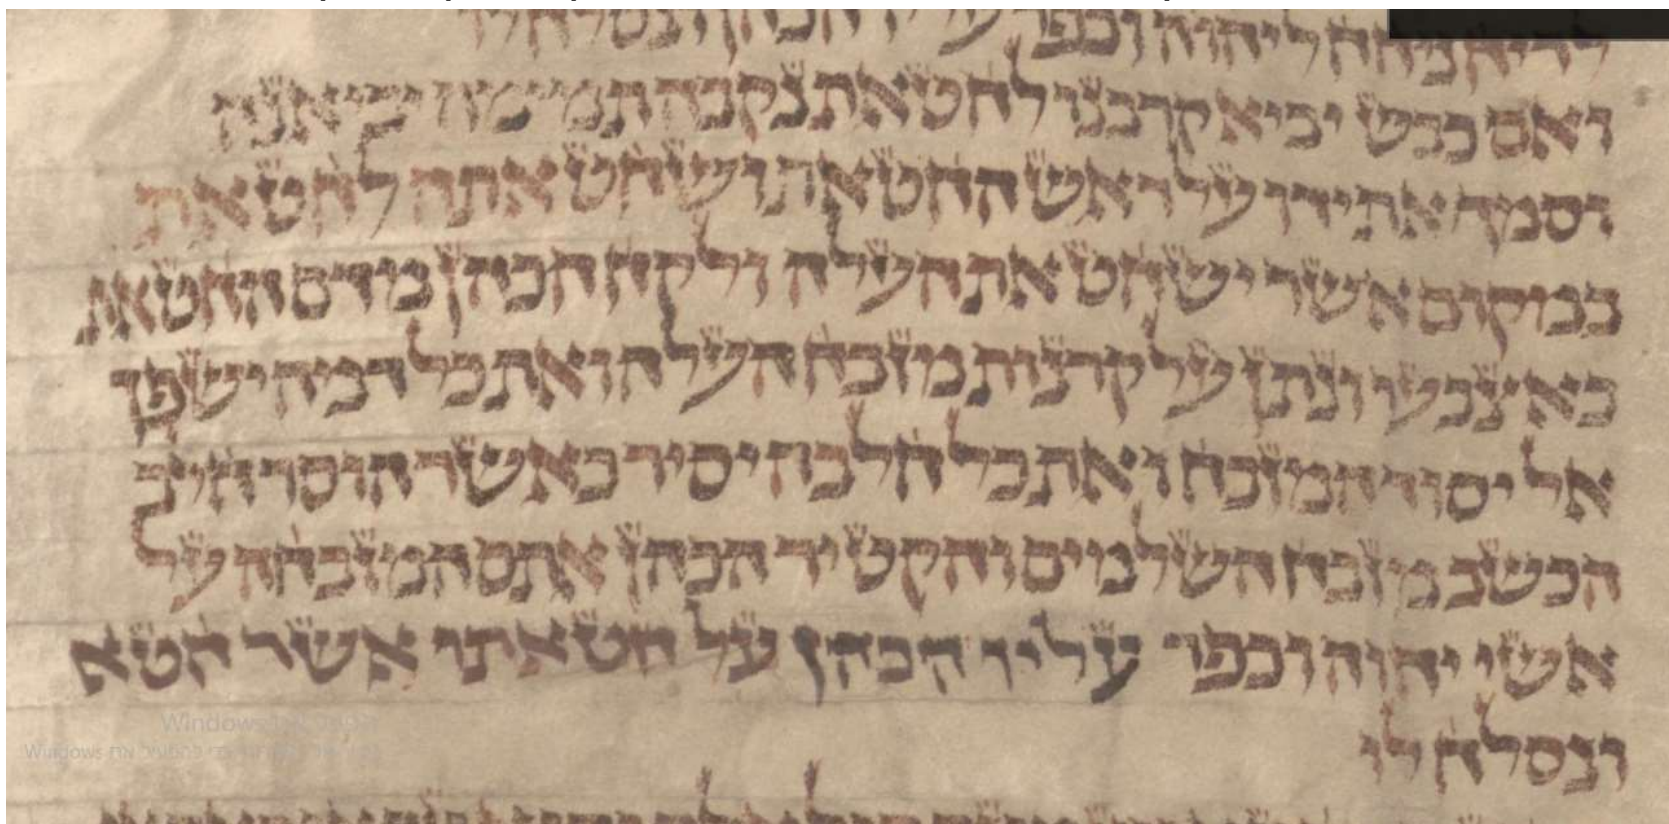 לריח ניחח ליהוה וכפר עליו הכהן ונסלח לו
ואם כבש יביא קרבנו לחטאת נקבה תמימה יביאנה
וסמך את ידו על ראש החטאת ושחט אתה לחטאת
במקום אשר ישחט את העלה ולקח הכהן מדם החטאת
באצבעו ונתן על קרנות מזבח העלה ואת כל דמה ישפך
אל יסוד המזבח ואת כל חלבה יסיר כאשר יוסר חלב
הכשב מזבח השלמים והקטיר הכהן אתם המזבחה על
אשי יהוה וכפר עליו הכהן על חטאתו אשר חטא
Windows
Windows
ונסלח לו